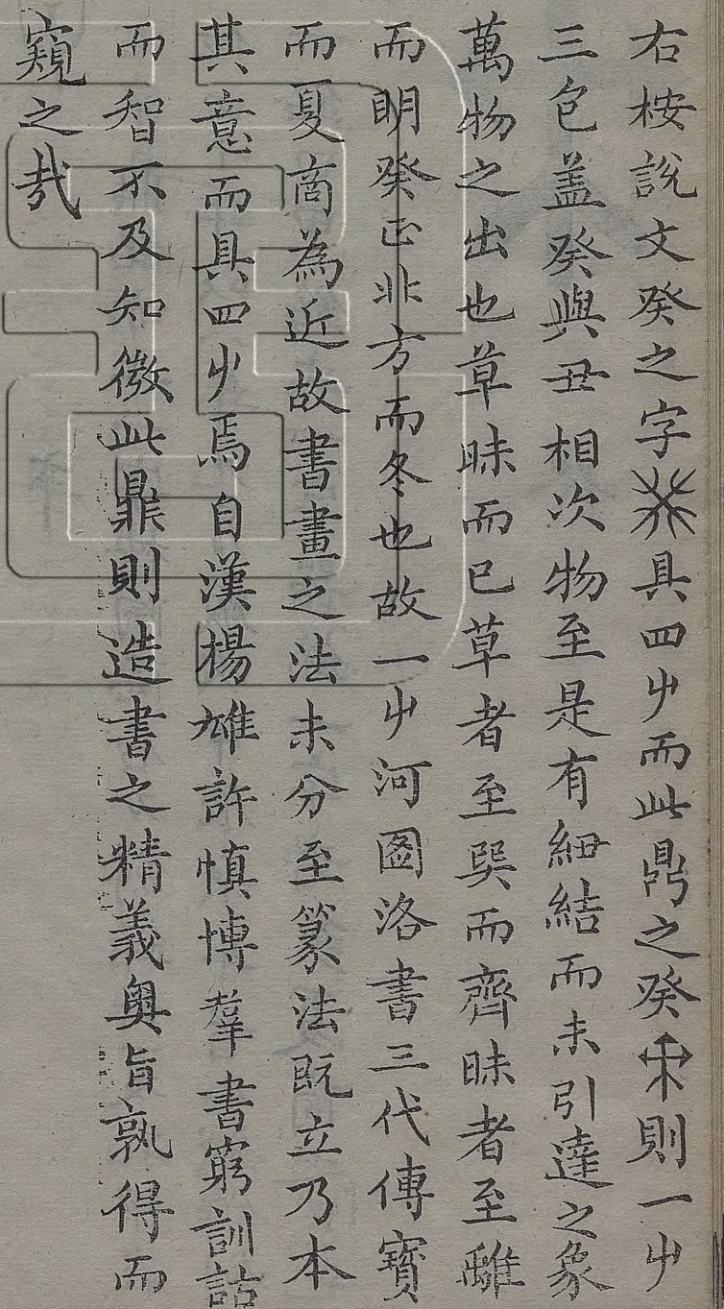 右桉說文癸之字𤼩具四屮而此鼎之癸則一屮
三包盖癸與丑相次物至是有紐結而未引達之象
萬物之出也草昧而已草者至巽而齊昧者至離
而明癸正北方而冬也故一屮河圖洛書三代傳寶
而夏商為近故書畫之法未分至篆法既立乃本
其意而具四屮焉自漢楊雄許慎博羣書窮訓詁
而智不及知微此鼎則造書之精義奧旨孰得而
窺之哉